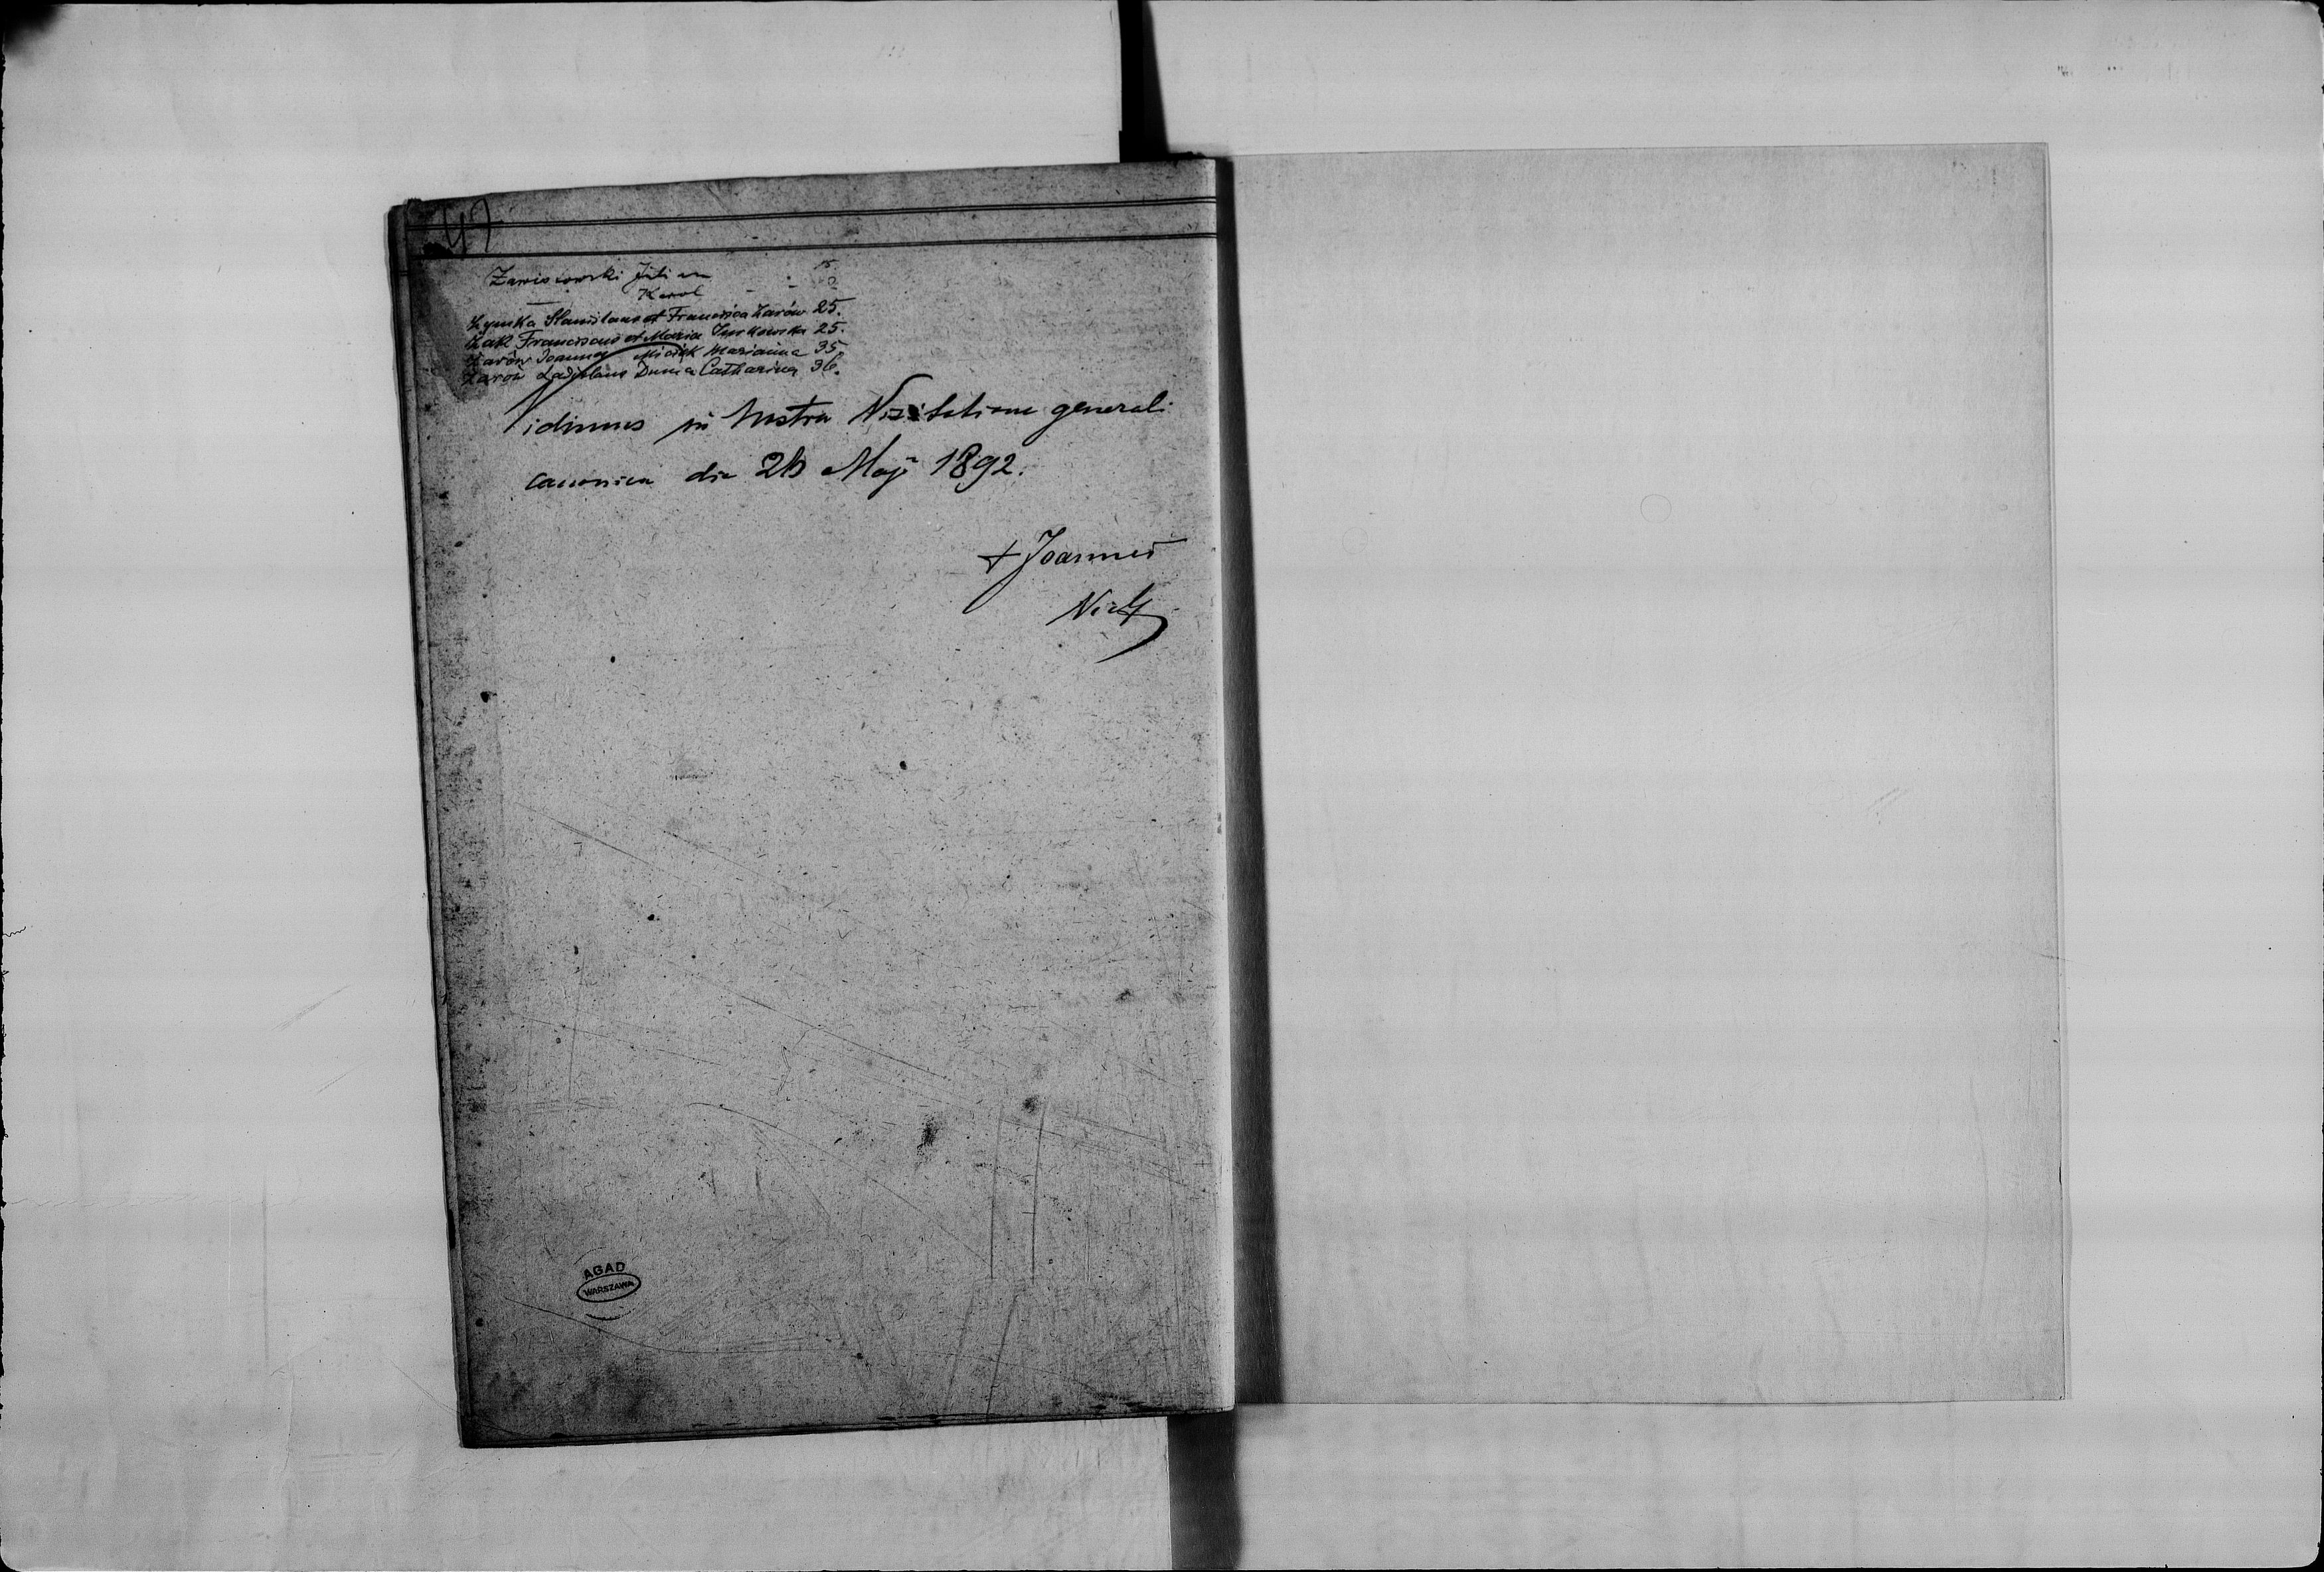 Zawiszowski Juli
— Karol - -
Zymka Stanislaus et Francisca Żarów 25.
Żak Franciscus et Maria Turkowska 25.
Żarów Joannes Misiak Marianna 35
Żarów Ladislaus Duma Catharina 36.
Vidimus in Nostra Visitatione generali
canonica die 26 Maji 1892.
+ Joannes
AGAD
WARSZAWA